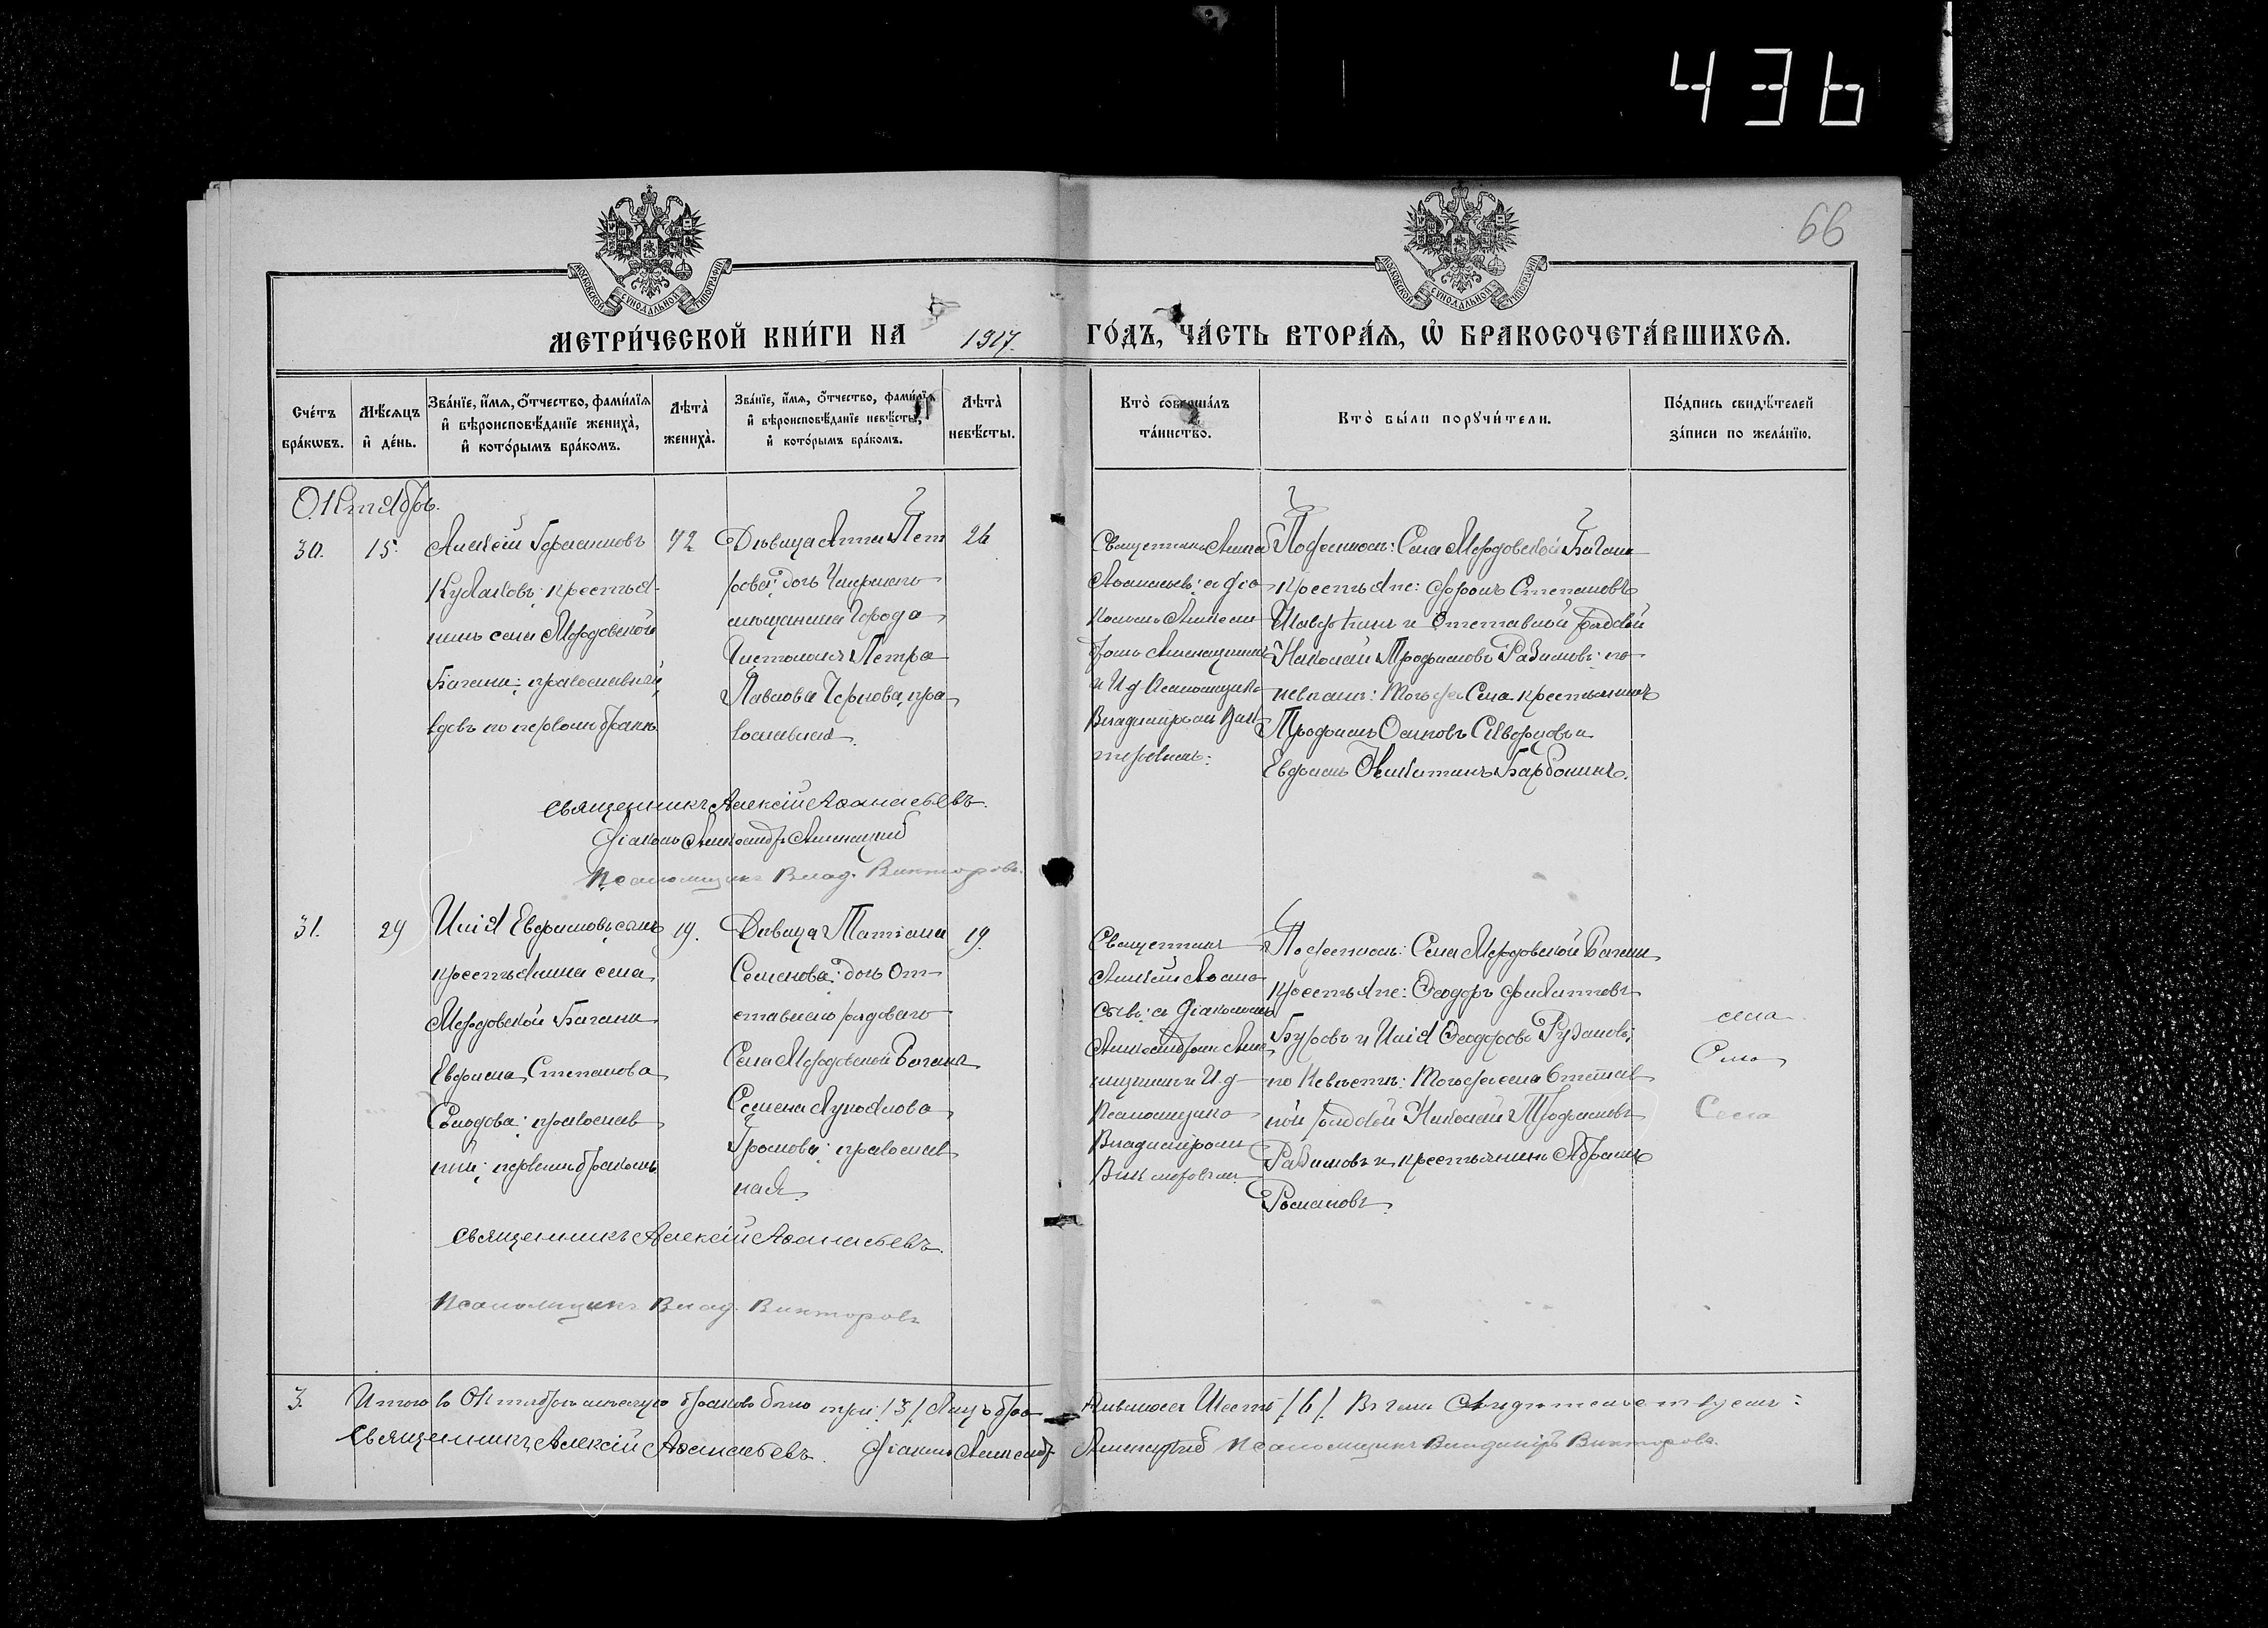 436
66
МОСКОВСКОЙ СУНОДАЛЬНОЙ ТИПОГРАФІИ
МОСКОВСКОЙ СУНОДАЛЬНОЙ ТИПОГРАФІИ
МЕТРИ́ЧЕСКОЙ КНИ́ГИ НА 1917. ГО́ДЪ, ЧА́СТЬ ВТОРА́Я, Ѡ҆ БРАКОСОЧЕТА́ВШИХСЯ.
Сче́тъ бра́кѡвъ.
Мѣ́сяцъ и҆ де́нь.
Зва́нїе, и҆́мя, ѻ҆́тчество, фами́лїя и҆ вѣроисповѣ́данїе жениха̀, и҆ кото́рымъ бра́комъ.
Лѣта̀ жениха̀.
Зва́нїе, и҆́мя, ѻ҆́тчество, фами́лїя и҆ вѣроисповѣ́данїе невѣ́сты, и҆ кото́рымъ бра́комъ.
Лѣта̀ невѣ́сты.
Кто̀ соверша́лъ та́инство.
Кто̀ бы́ли порꙋчи́тели.
По́дпись свидѣ́телей за́писи по жела́нїю.
Октябрь.
30.
15.
Алексѣй Герасимовъ
Кулаковъ; крестья-
нинъ села Мордовской
Багани; православный
вдовъ по первомъ бракѣ.
42
Дѣвица Анна Пет
рова; дочь
мѣщанина города
Чистополя Петра
Павлова Чернова, пра
вославная.
26
Священникъ Алексѣй
Аѳанасьевъ; съ діа
кономъ Алексан
дромъ
и И. д. Псаломщика
Владиміромъ Вик
торовымъ.
По женихѣ: Села Мордовской Багани
крестьяне: Степановъ
и отставной рядовой
Николай Трофимовъ Разимовъ; по
невѣстѣ: того же села крестьянинъ
Трофимъ Осиповъ Скворцовъ и
Ефимъ
Священникъ Алексій Аѳанасьевъ.
Діаконъ Александръ
Псаломщикъ Влад. Викторовъ.
31.
29
Илія Ефимовъ, сынъ
крестьянина села
Мордовской Багани
Ефима Степанова
Солодова; православ
ный; первымъ бракомъ
19.
Дѣвица Татіана
Семенова; дочь от
ставного рядового
Села Мордовской Багани
Семена Лукоянова
Громова; православ
ная.
19.
Священникъ
Алексѣй Аѳана
сьевъ; съ Діакономъ
Александромъ
и И. д.
Псаломщика
Владиміромъ
Викторовымъ.
По женихѣ: Села Мордовской Багани
крестьяне: Ѳеодоръ Филипповъ
Буровъ и Илія Ѳеодоровъ
по невѣстѣ: того же села отстав
ной рядовой Николай Трофимовъ
Разимовъ и крестьянинъ Абрамъ
Романовъ.
села
Села
Села
Священникъ Алексій Аѳанасьевъ.
Псаломщикъ Влад. Викторовъ
3. Итого въ Октябрѣ мѣсяцѣ браковъ было три /3/ Лицъ бра чившихся Шесть /6/. Въ чемъ Свидѣтельствуемъ:
Священникъ Алексій Аѳанасьевъ. Діаконъ Александръ Псаломщикъ Владиміръ Викторовъ.